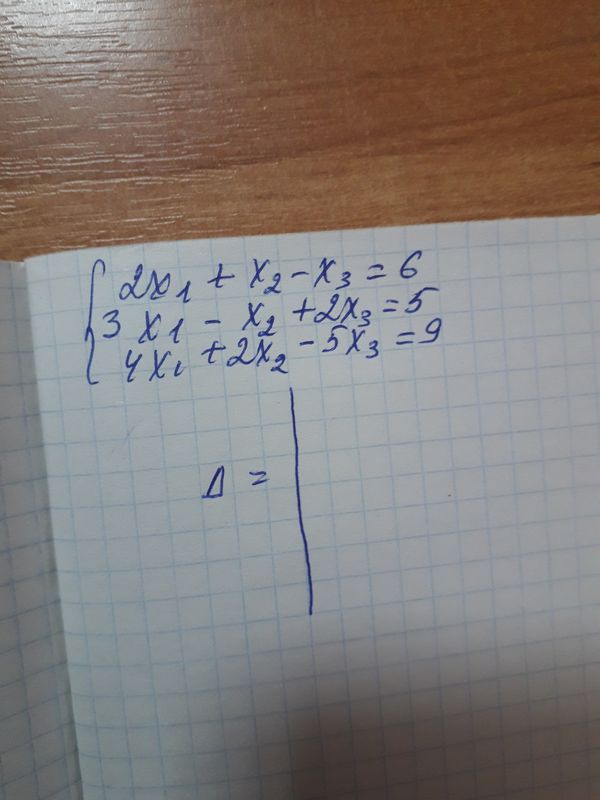 2x₁ + x₂ - x₃ = 6
3x₁ - x₂ + 2x₃ = 5
4x₁ + 2x₂ - 5x₃ = 9
Δ =